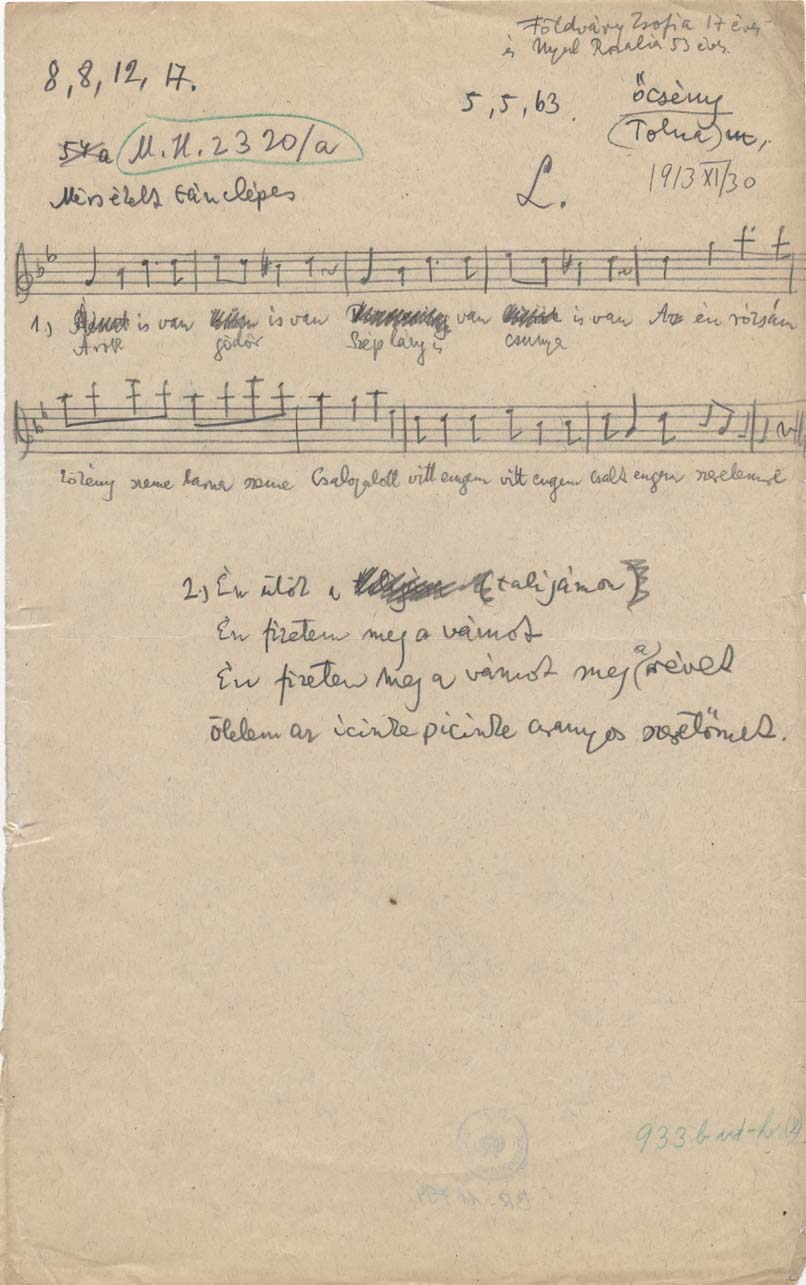 Földváry Zsofia 17 éves
és Nyul Rozalia 53 éves.
8, 8, 12, 17.
5, 5, 63.
Őcsény
(Tolna) m,
57a M.H. 2320/a
1913 XI/30
Mérsékelt tánclépés
L.
1, is van is van van is van Az én rózsám
Árok gödör Szép lány is csunya
szeme barna szeme Csalogatott vitt engem vitt engem csalt engem szerelemre
2, Én ülök a (talijámon)
Én fizetem meg a vámot
Én fizetem meg a vámot meg (a) révet
ölelem az icinke picinke aranyos szeretőmet.
933
BR-